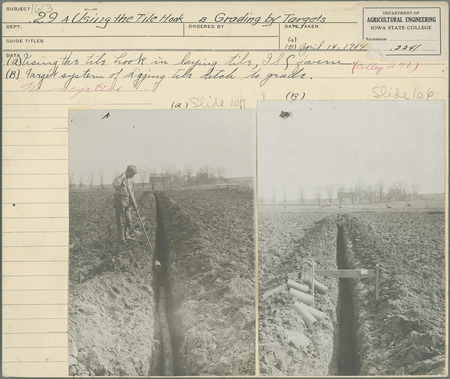 SUBJECT 613
22 A Using the Tile Hook B Grading by Targets
DEPT. ORDERED BY DATE TAKEN
DEPARTMENT OF
AGRICULTURAL ENGINEERING
IOWA STATE COLLEGE
Accession 2341
GUIDE TITLES
(a)
(B) April 14, 1914
DATA (a) Using the tile hook in laying tile, I S C farm
(B) Target system of digging tile ditch to grade.
No negative
(a) Slide 107 (B) Slide 106
A B